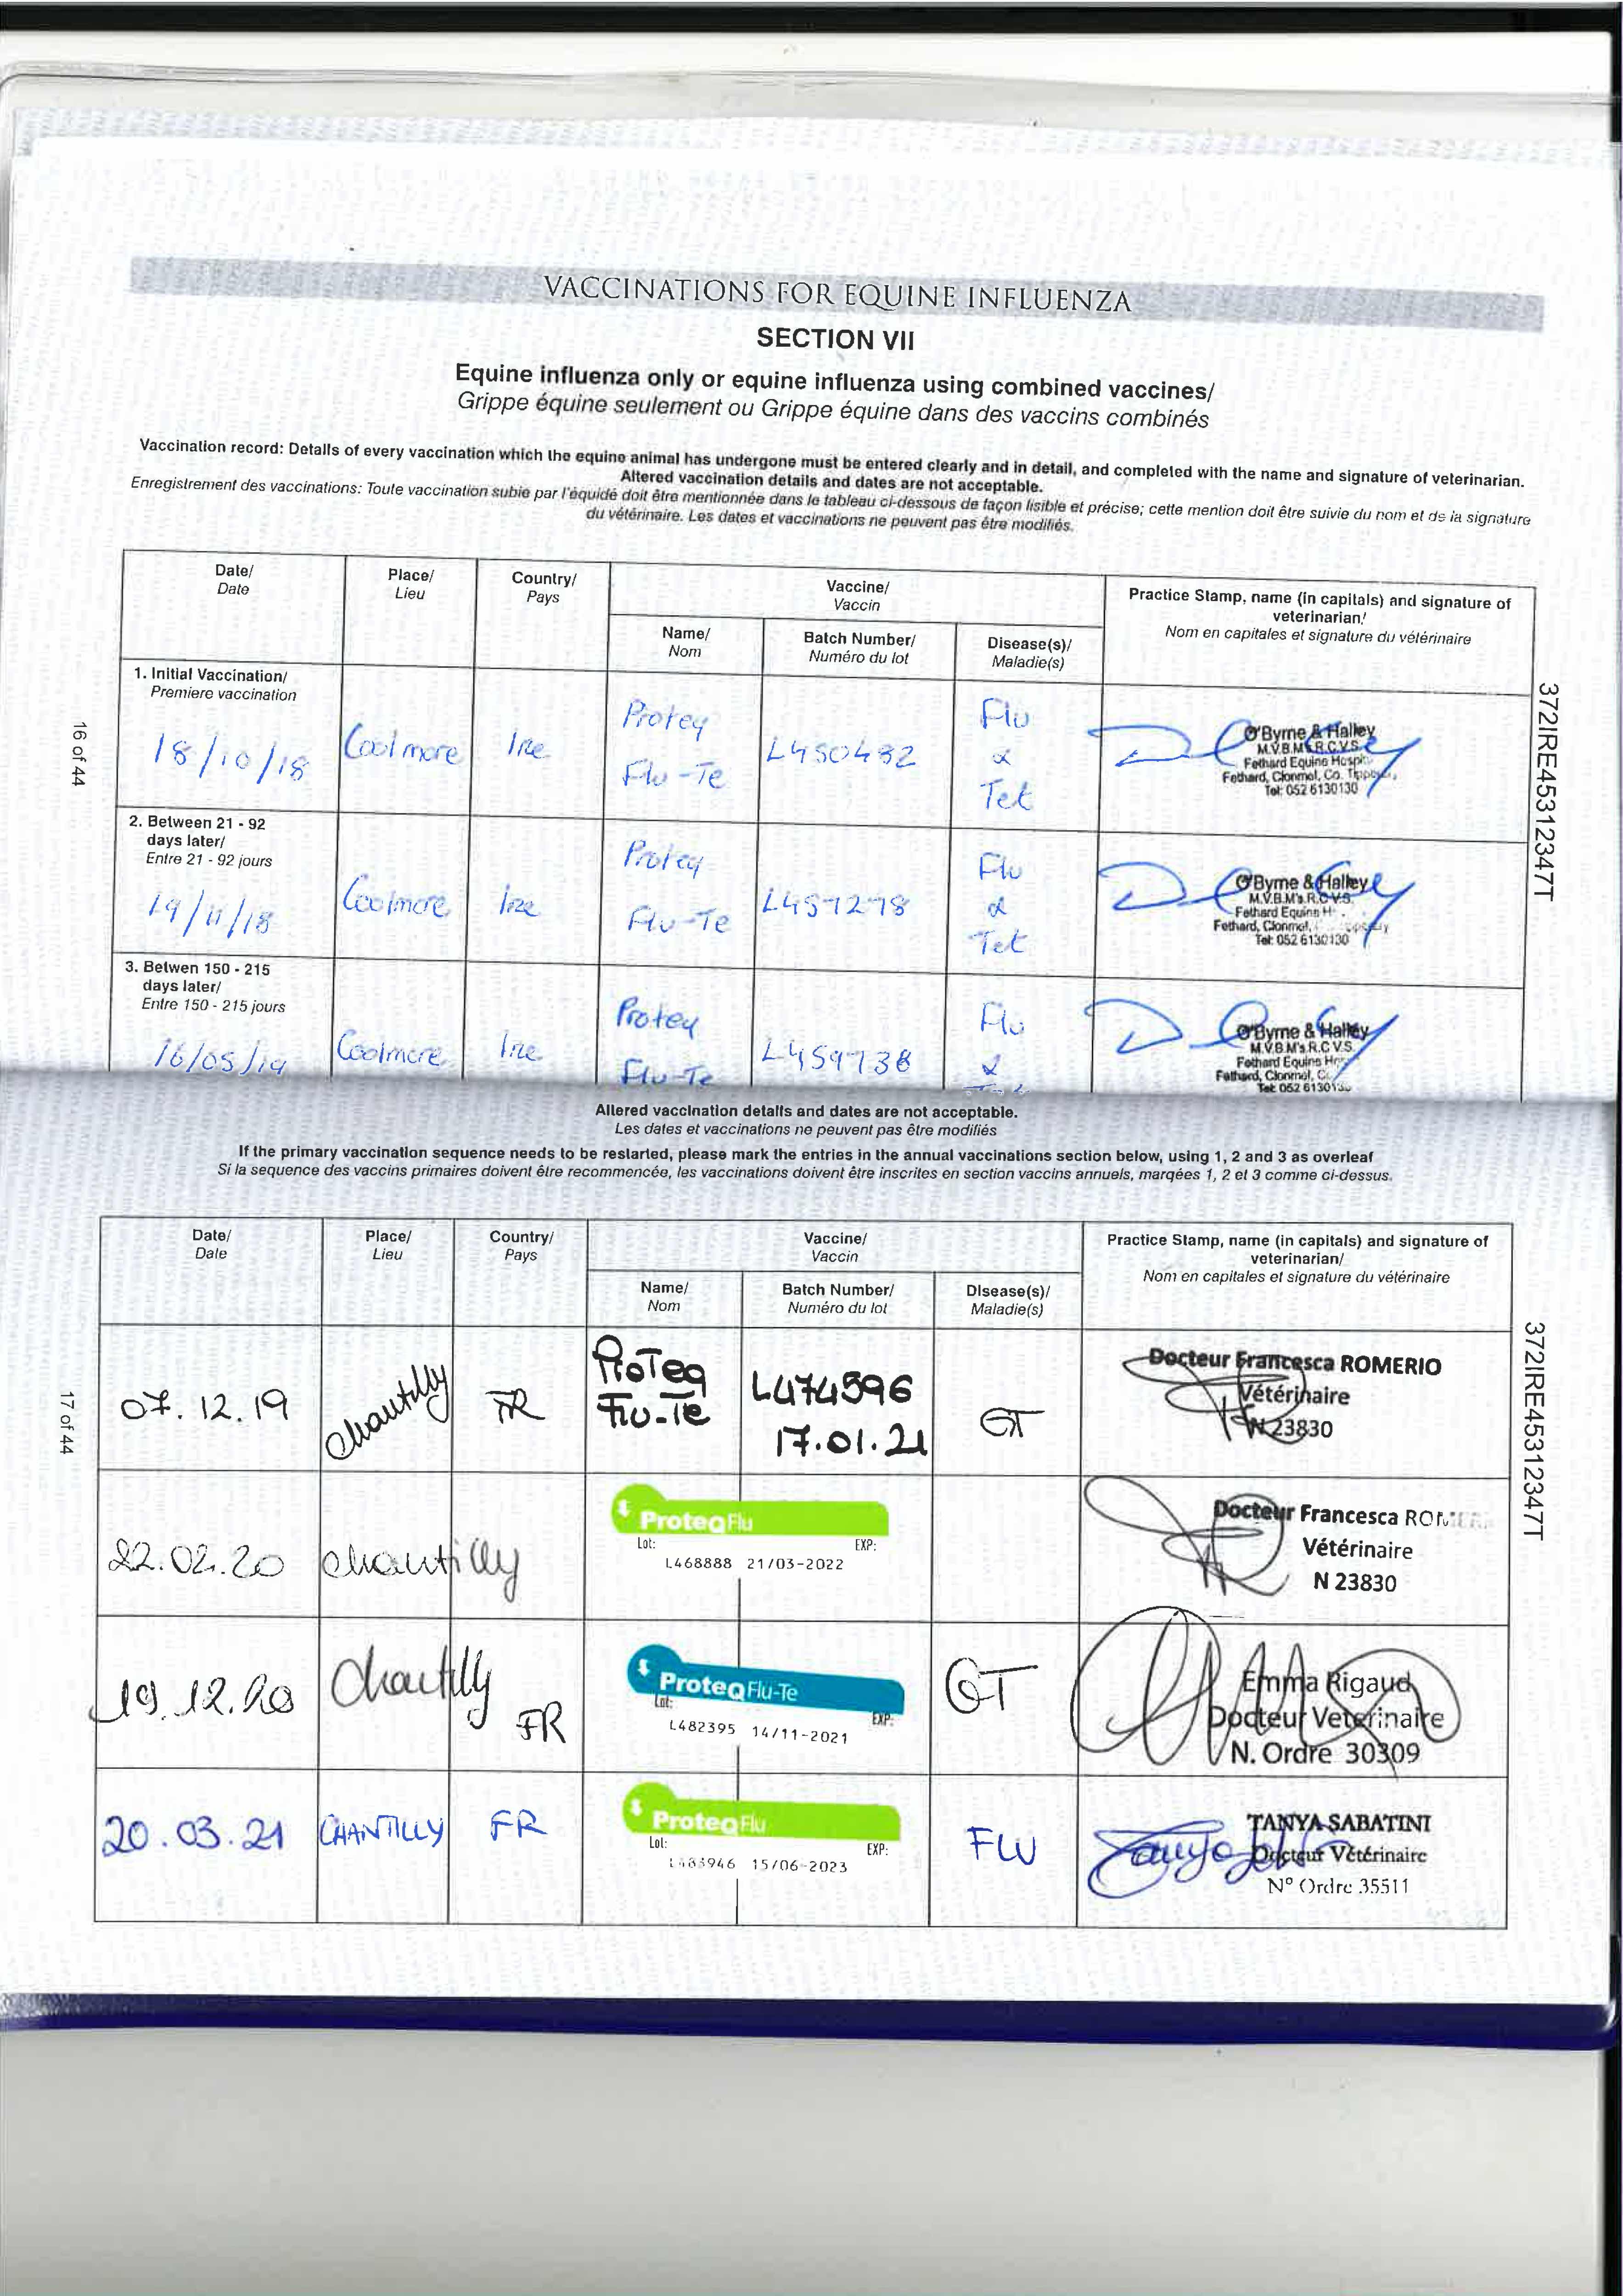 VACCINATIONS FOR EQUINE INFLUENZA
SECTION VII
Equine influenza only or equine influenza using combined vaccines/
Grippe équine seulement ou Grippe équine dans des vaccins combinés
Vaccination record: Details of every vaccination which the equine animal has undergone must be entered clearly and in detail, and completed with the name and signature of veterinarian.
Altered vaccination details and dates are not acceptable.
Enregistrement des vaccinations: Toute vaccination subie par l'équidé doit être mentionnée dans le tableau ci-dessous de façon lisible et précise; cette mention doit être suivie du nom et de la signature
du vétérinaire. Les dates et vaccinations ne peuvent pas être modifiés.
Date/
Date
Place/
Lieu
Country/
Pays
Vaccine/
Vaccin
Practice Stamp, name (in capitals) and signature of
veterinarian/
Nom en capitales et signature du vétérinaire
Name/
Nom
Batch Number/
Numéro du lot
Disease(s)/
Maladie(s)
1. Initial Vaccination/
Premiere vaccination
18/10/18
Coolmore
Ire
Proteq
Flu-Te
L450432
Flu
&
Tet
O'Byrne & Halley
M.V.B.M's R.C.V.S.
Fethard Equine Hospi
Fethard, Clonmel, Co. Tipp
Tel: 052 6130130
2. Between 21 - 92
days later/
Entre 21 - 92 jours
19/11/18
Coolmore
Ire
Proteq
Flu-Te
L457278
Flu
&
Tet
O'Byrne & Halley
M.V.B.M's R.C.V.S.
Fethard Equine H
Fethard, Clonmel,
Tel: 052 6130130
3. Betwen 150 - 215
days later/
Entre 150 - 215 jours
16/05/19
Coolmore
Ire
Proteq
Flu-Te
L459738
Flu
&
O'Byrne & Halley
M.V.B.M's R.C.V.S.
Fethard Equine Ho
Fethard, Clonmel, C
Tel: 052 61301
16 of 44
372IRE45312347T
Altered vaccination details and dates are not acceptable.
Les dates et vaccinations ne peuvent pas être modifiés
If the primary vaccination sequence needs to be restarted, please mark the entries in the annual vaccinations section below, using 1, 2 and 3 as overleaf
Si la sequence des vaccins primaires doivent être recommencée, les vaccinations doivent être inscrites en section vaccins annuels, marqées 1, 2 et 3 comme ci-dessus.
Date/
Date
Place/
Lieu
Country/
Pays
Vaccine/
Vaccin
Practice Stamp, name (in capitals) and signature of
veterinarian/
Nom en capitales et signature du vétérinaire
Name/
Nom
Batch Number/
Numéro du lot
Disease(s)/
Maladie(s)
07.12.19
Chantilly
FR
ProTeq
Flu-Te
L474596
17.01.21
GT
Docteur Francesca ROMERIO
Vétérinaire
N 23830
22.02.20
Chantilly
ProteqFlu
Lot:
EXP:
L468888 21/03-2022
Docteur Francesca ROMERIO
Vétérinaire
N 23830
19.12.20
Chantilly
FR
ProteqFlu-Te
Lot:
EXP:
L482395 14/11-2021
GT
Emma Rigaud
Docteur Veterinaire
N. Ordre 30309
20.03.21
CHANTILLY
FR
ProteqFlu
Lot:
EXP:
L483946 15/06-2023
FLU
TANYA SABATINI
Docteur Vétérinaire
N° Ordre 35511
17 of 44
372IRE45312347T